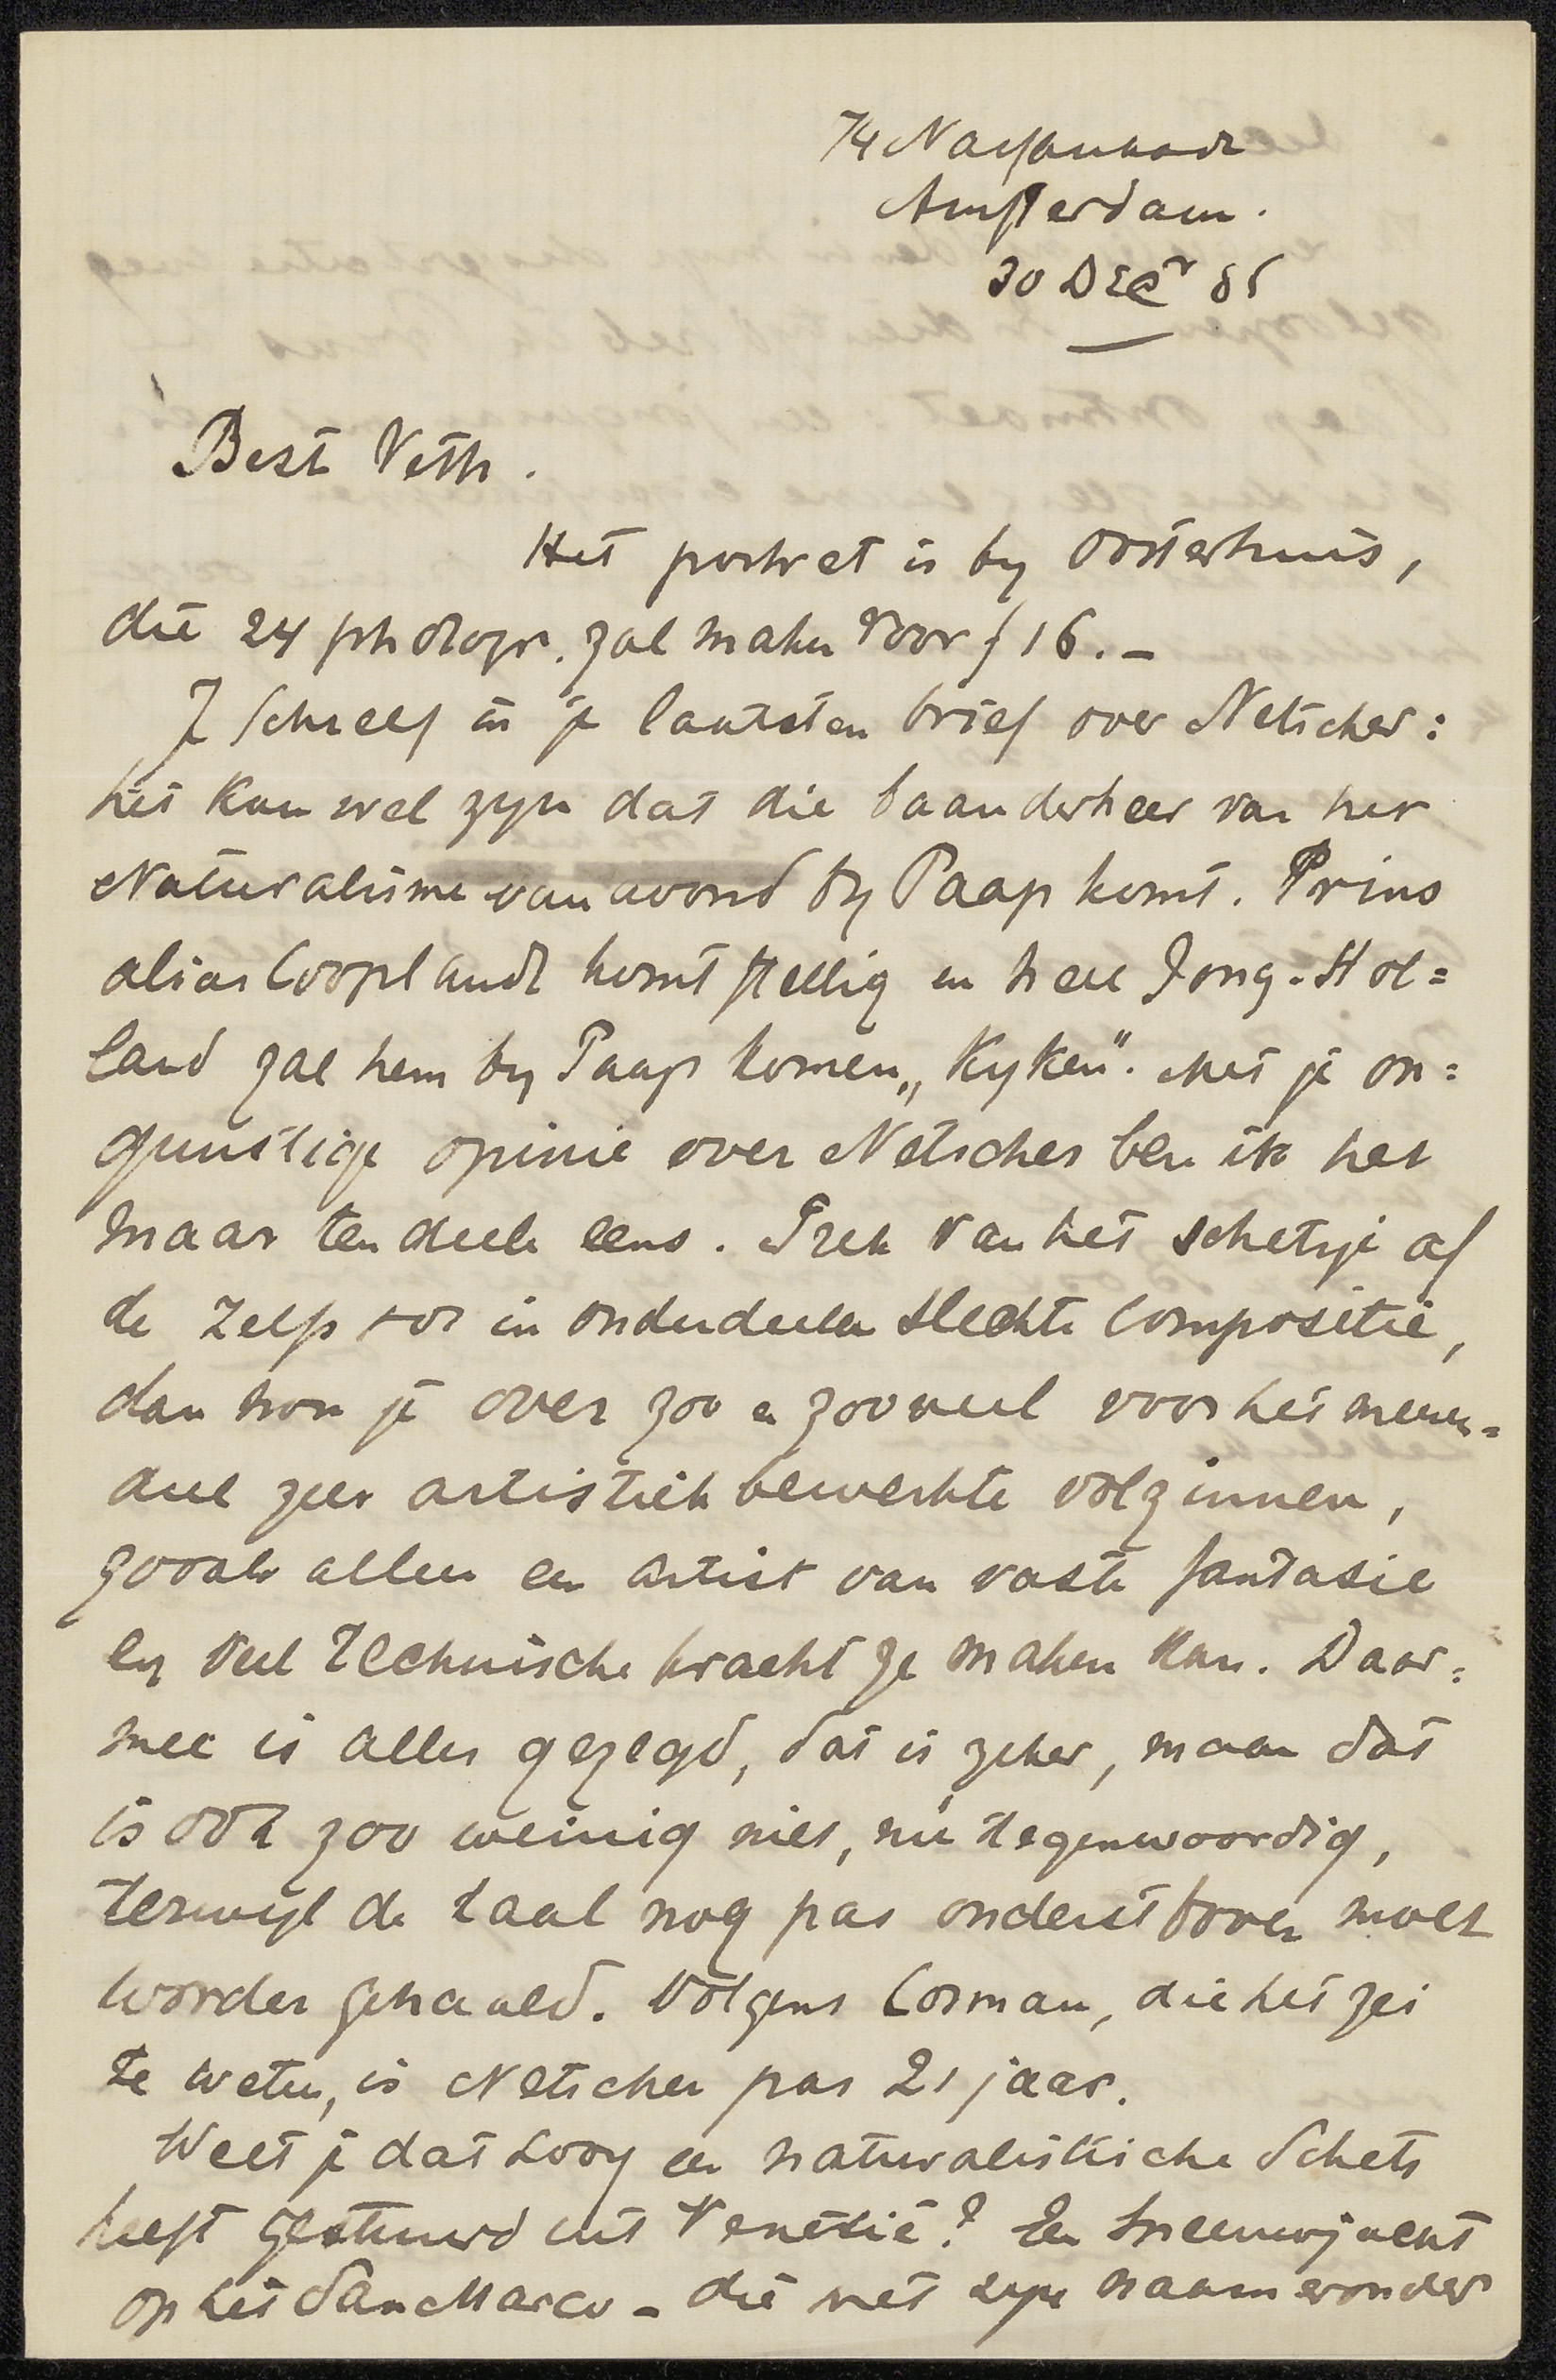 74 Nassaukade
Amsterdam.
30 Decr 85
Best Veth.
Het portret is by Oosterhuis,
die 24 photogr. zal maken voor f 16.-
J schreef in je laatsten brief over Netscher:
het kan wel zyn dat die baanderheer van het
Naturalisme van avond by Paap komt. Prins
alias Cooplandt komt stellig en heel Jong-Hol=
land zal hem by Paap komen „kyken". Met je on=
gunstige opinie over Netscher ben ik het
maar ten deele eens. Trek van het schetsje af
de zelfs tot in onderdeelen slechte compositie,
dan hou je over zoo en zooveel voor het meeren=
deel zeer artistiek bewerkte volzinnen,
zooals alleen een artist van vaste fantasie
en veel technische kracht ze maken kan. Daar=
mee is alles gezegd, dat is zeker, maar dat
is ook zoo weinig niet, nú tegenwoordig,
terwyl de taal nog pas onderstboven moet
worden gehaald. Volgens Cosman, die het zei
te weten, is Netscher pas 21 jaar.
Weet je dat Looy een naturalistische schets
heeft gestuurd uit Venetië? Een sneeuwjacht
op het San Marco - die met zyn naam eronder